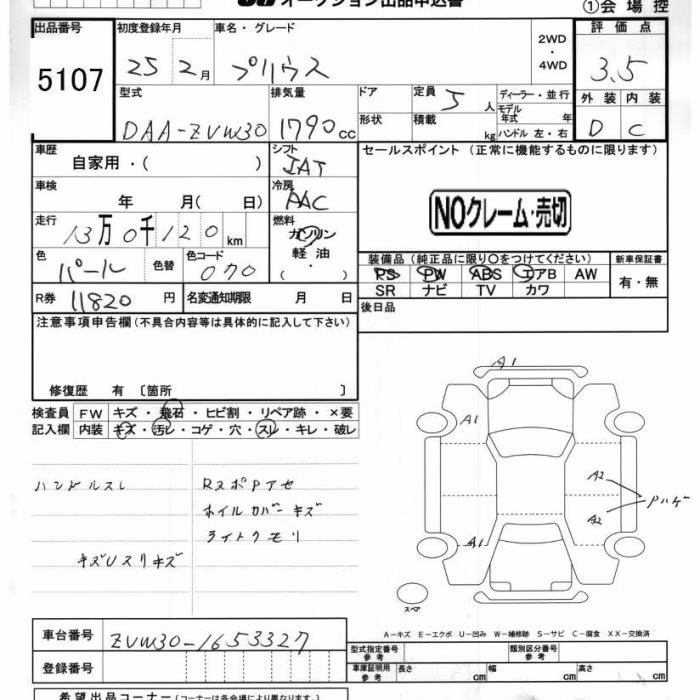 オークション出品申込書
①会場控
出品番号 初度登録年月 車名・グレード 2WD・4WD 評価点
5107 25 2月 プリウス 3.5
型式 排気量 ドア 定員 5人 ディーラー・並行
DAA-ZVW30 1790cc 形状 積載 kg モデル年式 年 ハンドル 左・右
外装 内装
D C
車歴 シフト セールスポイント (正常に機能するものに限ります)
自家用・( ) IAT
車検 冷房
年 月( 日) AAC
NOクレーム・売切
走行 燃料
13万0千120km ガソリン
軽油
( ・ )
色 色替 色コード
パール 070
装備品(純正品に限り〇をつけてください) 新車保証書
PS PW ABS エアB AW 有・無
SR ナビ TV カワ
R券 11820円 名変通知期限 月 日
後日品
注意事項申告欄(不具合内容等は具体的に記入して下さい)
修復歴 有 〔箇所 〕
検査員 FW キズ・飛石・ヒビ割・リペア跡・×要
記入欄 内装 キズ・汚レ・コゲ・穴・スレ・キレ・破レ
A1
A1
ハンドルスレ RスポPアセ
A2
ホイルカバーキズ
Pハゲ
A2
ライトクモリ
A1
キズUスリキズ
スペア
A-キズ E-エクボ U-凹み W-補修跡 S-サビ C-腐食 XX-交換済
車台番号 ZVW30-1653327
型式指定番号 参考 類別区分番号 参考
登録番号
車庫証明用 参考 長さ cm 幅 cm 高さ cm
希望出品コーナー(コーナーは各会場により異なります)